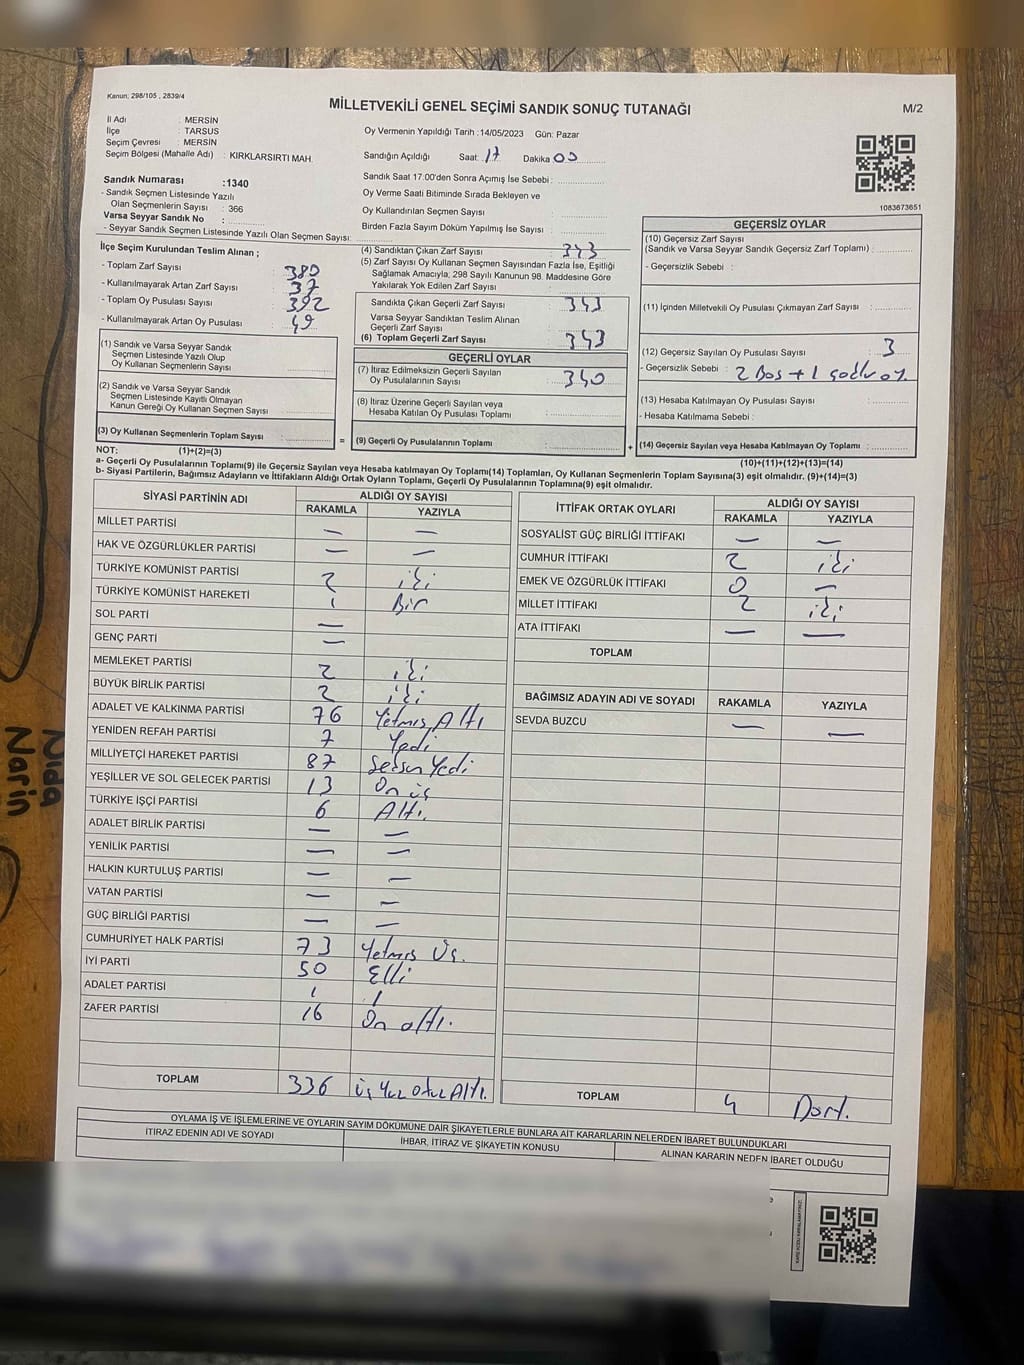 Kanun; 298/105 , 2839/4
MİLLETVEKİLİ GENEL SEÇİMİ SANDIK SONUÇ TUTANAĞI
M/2
İl Adı : MERSİN
İlçe : TARSUS
Seçim Çevresi : MERSİN
Seçim Bölgesi (Mahalle Adı) : KIRKLARSIRTI MAH.
Oy Vermenin Yapıldığı Tarih :14/05/2023 Gün: Pazar
Sandığın Açıldığı Saat: 17 Dakika 05
Sandık Saat 17.00'den Sonra Açımış İse Sebebi :
Oy Verme Saati Bitiminde Sırada Bekleyen ve
Oy Kullandırılan Seçmen Sayısı :
Birden Fazla Sayım Döküm Yapılmış İse Sayısı :
1083873651
Sandık Numarası :1340
- Sandık Seçmen Listesinde Yazılı
Olan Seçmenlerin Sayısı : 366
Varsa Seyyar Sandık No :
- Seyyar Sandık Seçmen Listesinde Yazılı Olan Seçmen Sayısı:
İlçe Seçim Kurulundan Teslim Alınan ;
- Toplam Zarf Sayısı : 380
- Kullanılmayarak Artan Zarf Sayısı : 37
- Toplam Oy Pusulası Sayısı : 392
- Kullanılmayarak Artan Oy Pusulası : 49
(1) Sandık ve Varsa Seyyar Sandık
Seçmen Listesinde Yazılı Olup
Oy Kullanan Seçmenlerin Sayısı :
(2) Sandık ve Varsa Seyyar Sandık
Seçmen Listesinde Kayıtlı Olmayan
Kanun Gereği Oy Kullanan Seçmen Sayısı :
(3) Oy Kullanan Seçmenlerin Toplam Sayısı :
(4) Sandıktan Çıkan Zarf Sayısı : 343
(5) Zarf Sayısı Oy Kullanan Seçmen Sayısından Fazla İse, Eşitliği
Sağlamak Amacıyla, 298 Sayılı Kanunun 98. Maddesine Göre
Yakılarak Yok Edilen Zarf Sayısı :
Sandıkta Çıkan Geçerli Zarf Sayısı : 343
Varsa Seyyar Sandıktan Teslim Alınan
Geçerli Zarf Sayısı :
(6) Toplam Geçerli Zarf Sayısı : 343
GEÇERLİ OYLAR
(7) İtiraz Edilmeksizin Geçerli Sayılan
Oy Pusulalarının Sayısı : 340
(8) İtiraz Üzerine Geçerli Sayılan veya
Hesaba Katılan Oy Pusulası Toplamı :
= (9) Geçerli Oy Pusulalarının Toplamı :
GEÇERSİZ OYLAR
(10) Geçersiz Zarf Sayısı
(Sandık ve Varsa Seyyar Sandık Geçersiz Zarf Toplamı) :
- Geçersizlik Sebebi :
(11) İçinden Milletvekili Oy Pusulası Çıkmayan Zarf Sayısı :
(12) Geçersiz Sayılan Oy Pusulası Sayısı : 3
- Geçersizlik Sebebi : 2 Boş + 1
(13) Hesaba Katılmayan Oy Pusulası Sayısı :
- Hesaba Katılmama Sebebi :
+ (14) Geçersiz Sayılan veya Hesaba Katılmayan Oy Toplamı :
NOT: (1)+(2)=(3)
(10)+(11)+(12)+(13)=(14)
a- Geçerli Oy Pusulalarının Toplamı(9) ile Geçersiz Sayılan veya Hesaba katılmayan Oy Toplamı(14) Toplamları, Oy Kullanan Seçmenlerin Toplam Sayısına(3) eşit olmalıdır. (9)+(14)=(3)
b- Siyasi Partilerin, Bağımsız Adayların ve İttifakların Aldığı Ortak Oyların Toplamı, Geçerli Oy Pusulalarının Toplamına(9) eşit olmalıdır.
SİYASİ PARTİNİN ADI ALDIĞI OY SAYISI
RAKAMLA YAZIYLA
MİLLET PARTİSİ — —
HAK VE ÖZGÜRLÜKLER PARTİSİ — —
TÜRKİYE KOMÜNİST PARTİSİ 2 iki
TÜRKİYE KOMÜNİST HAREKETİ 1 Bir
SOL PARTİ —
GENÇ PARTİ —
MEMLEKET PARTİSİ 2 iki
BÜYÜK BİRLİK PARTİSİ 2 iki
ADALET VE KALKINMA PARTİSİ 76 Yetmiş Altı
YENİDEN REFAH PARTİSİ 7 Yedi
MİLLİYETÇİ HAREKET PARTİSİ 87 Seksen Yedi
YEŞİLLER VE SOL GELECEK PARTİSİ 13 On üç
TÜRKİYE İŞÇİ PARTİSİ 6 Altı.
ADALET BİRLİK PARTİSİ — —
YENİLİK PARTİSİ — —
HALKIN KURTULUŞ PARTİSİ — —
VATAN PARTİSİ — —
GÜÇ BİRLİĞİ PARTİSİ — —
CUMHURİYET HALK PARTİSİ 73 Yetmiş Üç.
İYİ PARTİ 50 Elli
ADALET PARTİSİ 1 1
ZAFER PARTİSİ 16 On altı.
TOPLAM 336 üç Yüz Otuz Altı.
İTTİFAK ORTAK OYLARI ALDIĞI OY SAYISI
RAKAMLA YAZIYLA
SOSYALİST GÜÇ BİRLİĞİ İTTİFAKI — —
CUMHUR İTTİFAKI 2 iki
EMEK VE ÖZGÜRLÜK İTTİFAKI 0 —
MİLLET İTTİFAKI 2 iki
ATA İTTİFAKI — —
TOPLAM
BAĞIMSIZ ADAYIN ADI VE SOYADI RAKAMLA YAZIYLA
SEVDA BUZCU — —
TOPLAM 4 Dört.
OYLAMA İŞ VE İŞLEMLERİNE VE OYLARIN SAYIM DÖKÜMÜNE DAİR ŞİKAYETLERLE BUNLARA AİT KARARLARIN NELERDEN İBARET BULUNDUKLARI
İTİRAZ EDENİN ADI VE SOYADI İHBAR, İTİRAZ VE ŞİKAYETİN KONUSU ALINAN KARARIN NEDEN İBARET OLDUĞU
Nida
Narin